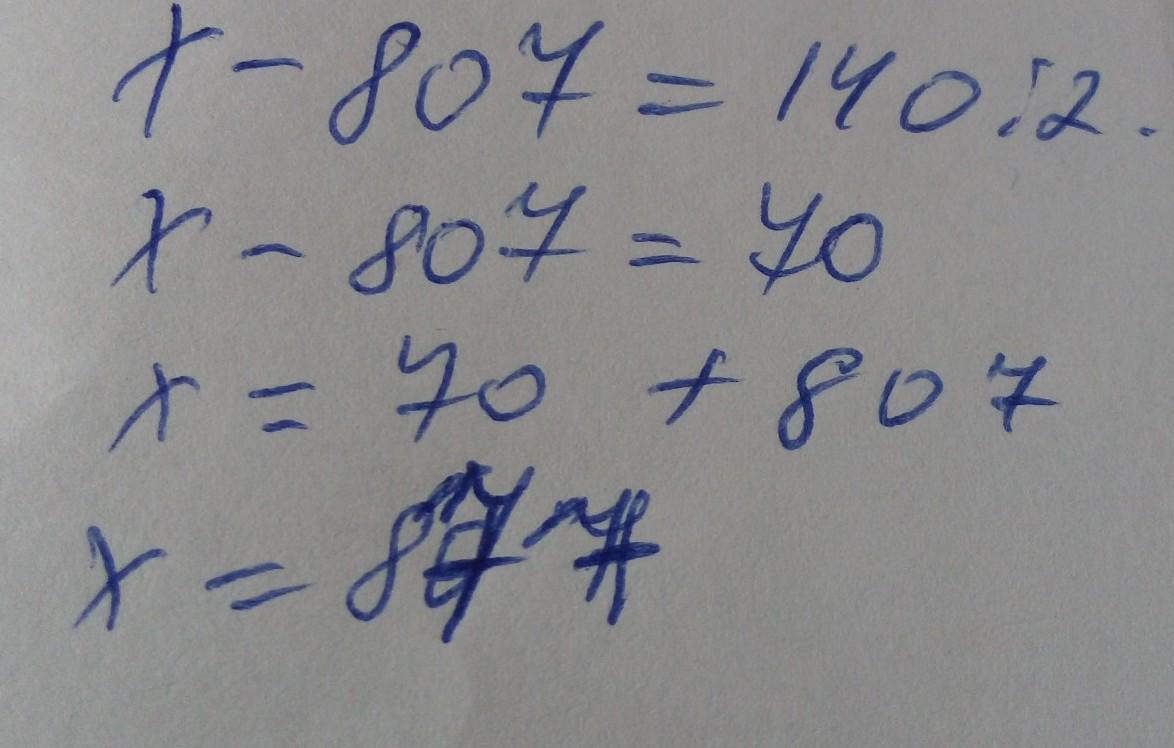 x - 807 = 140 : 2.
x - 807 = 70
x = 70 + 807
x = 877